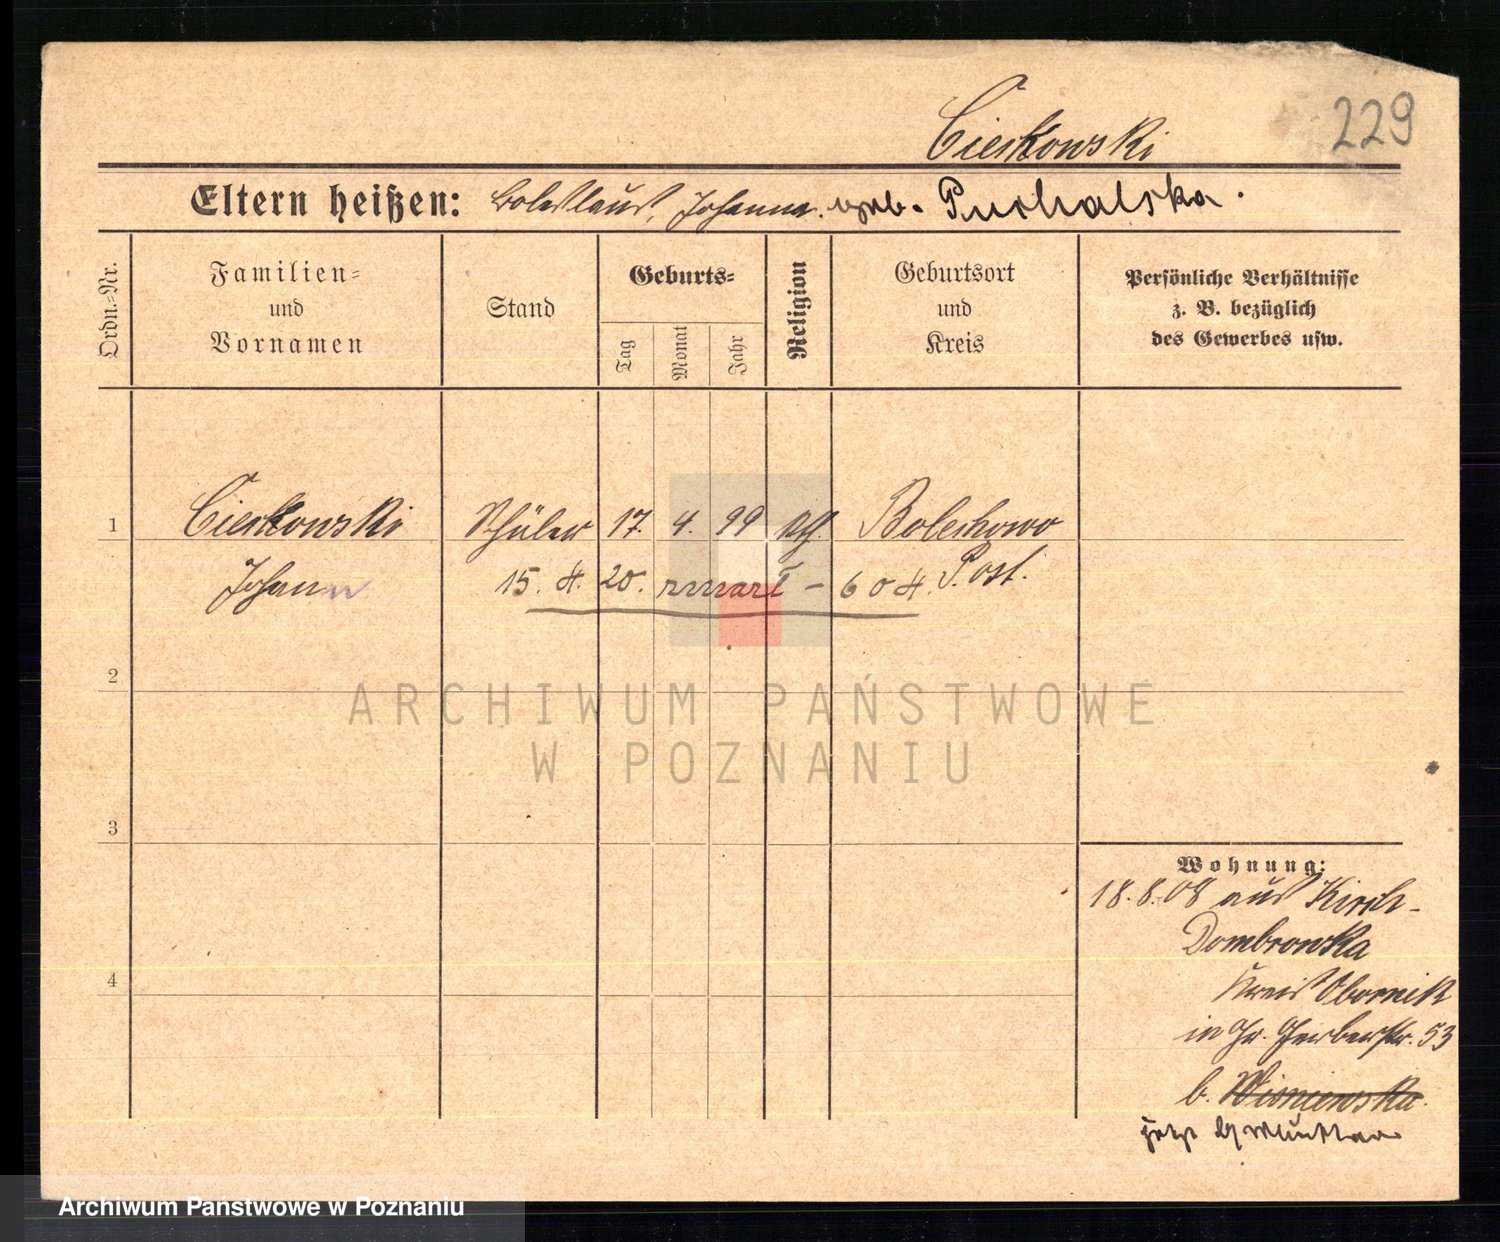 229
Cierkowski
Eltern heißen: Boleslaus, Johanna. geb. Puchalska.
Ordn.-Nr.
Familien-
und
Vornamen
Stand
Geburts-
Tag
Monat
Jahr
Religion
Geburtsort
und
Kreis
Persönliche Verhältnisse
z. B. bezüglich
des Gewerbes usw.
1
Cierkowski Schüler 17. 4. 99 kth. Bolechowo
Johann
15. 4. 20. - 604. Post.
2
ARCHIWUM PAŃSTWOWE
W POZNANIU
3
Wohnung:
18.8.08 aus Kirch-
Dombrowka
4
Kreis Obornik
in Gr. Gerberstr. 53
b. Wisniewska.
jetzt Mutter
Archiwum Państwowe w Poznaniu